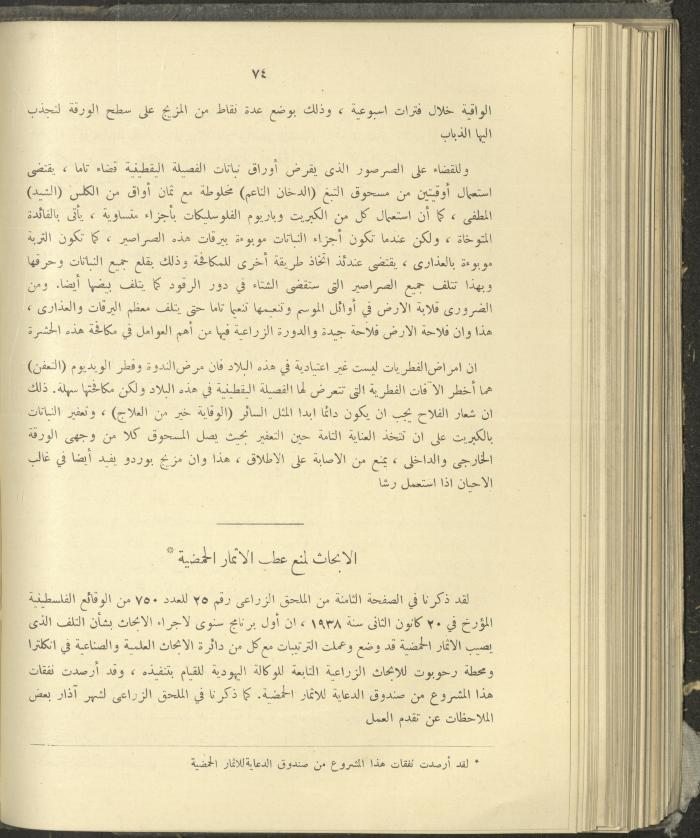 ٧٤
الواقية خلال فترات اسبوعية ، وذلك بوضع عدة نقاط من المزيج على سطح الورقة لتجذب
اليها الذباب
وللقضاء على الصرصور الذى يقرض أوراق نباتات الفصيلة اليقطينية قضاء تاما ، يقتضى
استعمال أوقيتين من مسحوق التبغ (الدخان الناعم) مخلوطة مع ثمان أواق من الكلس (الشيد)
المطفى ، كما أن استعمال كل من الكبريت وباريوم الفلوسليكات بأجزاء متساوية ، يأتى بالفائدة
المتوخاة ، ولكن عندما تكون أجزاء النباتات موبوءة بيرقات هذه الصراصير ، كما تكون التربة
موبوءة بالعذارى ، يقتضى عندئذ اتخاذ طريقة أخرى للمكافحة وذلك بقلع جميع النباتات وحرقها
وبهذا تتلف جميع الصراصير التى ستقضى الشتاء في دور الرقود كما يتلف بيضها أيضا. ومن
الضرورى قلابة الارض في أوائل الموسم وتنعيمها تنعيما تاما حتى يتلف معظم اليرقات والعذارى ،
هذا وان فلاحة الارض فلاحة جيدة والدورة الزراعية فيها من أهم العوامل في مكافحة هذه الحشرة
ان امراض الفطريات ليست غير اعتيادية في هذه البلاد فان مرض الندوة وفطر الويديوم (التعفن)
هما أخطر الآفات الفطرية التى تتعرض لها الفصيلة اليقطينية في هذه البلاد ولكن مكافحتها سهلة. ذلك
ان شعار الفلاح يجب ان يكون دائما ابدا المثل السائر (الوقاية خير من العلاج) ، وتعفير النباتات
بالكبريت على ان تتخذ العناية التامة حين التعفير بحيث يصل المسحوق كلا من وجهى الورقة
الخارجى والداخلى ، يمنع من الاصابة على الاطلاق ، هذا وان مزيج بوردو يفيد أيضا في غالب
الاحيان اذا استعمل رشا
الابحاث لمنع عطب الاثمار الحمضية *
لقد ذكرنا في الصفحة الثامنة من الملحق الزراعى رقم ٢٥ للعدد ٧٥٠ من الوقائع الفلسطينية
المؤرخ في ٢٠ كانون الثانى سنة ١٩٣٨ ، ان أول برنامج سنوى لاجراء الابحاث بشأن التلف الذى
يصيب الاثمار الحمضية قد وضع وعملت الترتيبات مع كل من دائرة الابحاث العلمية والصناعية في انكلترا
ومحطة رحوبوت للابحاث الزراعية التابعة للوكالة اليهودية للقيام بتنفيذه ، وقد أرصدت نفقات
هذا المشروع من صندوق الدعاية للاثمار الحمضية. كما ذكرنا في الملحق الزراعى لشهر آذار بعض
الملاحظات عن تقدم العمل
* لقد أرصدت نفقات هذا المشروع من صندوق الدعاية للاثمار الحمضية